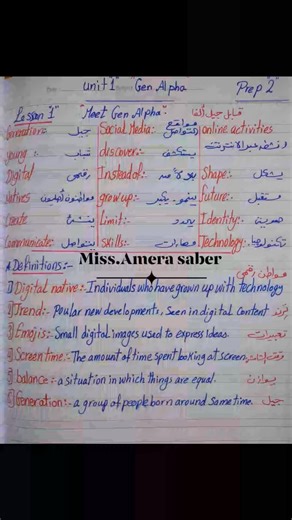 unit 1" Gen Alpha Prep "2"
Lesson "1" "Meet Gen Alpha" قابل جيل ألفا
Generation: جيل Social Media: مواقع التواصل online activities
young: شباب discover: يستكشف
Digital رقمي Instead of بدلا من Shape: يشكل
Natives grow up: ينمو- يكبر future: مستقبل
Create ينشئ Limit: يحدد Identity: هوية
Communicate: يتواصل Skills: مهارات Technology: تكنولوجيا
Miss.Amera saber
Definitions:- مواطن رقمي
Digital native:- Individuals who have grown up with technology
Trend:- Poular new developments, Seen in digital Content ترند
Emojis:- Small digital images used to express ideas. تعبيرات
Screen time:- The amount of time spent looking at screen
balance:- a situation in which things are equal.
Generation:- a group of people born around Same time. جيل